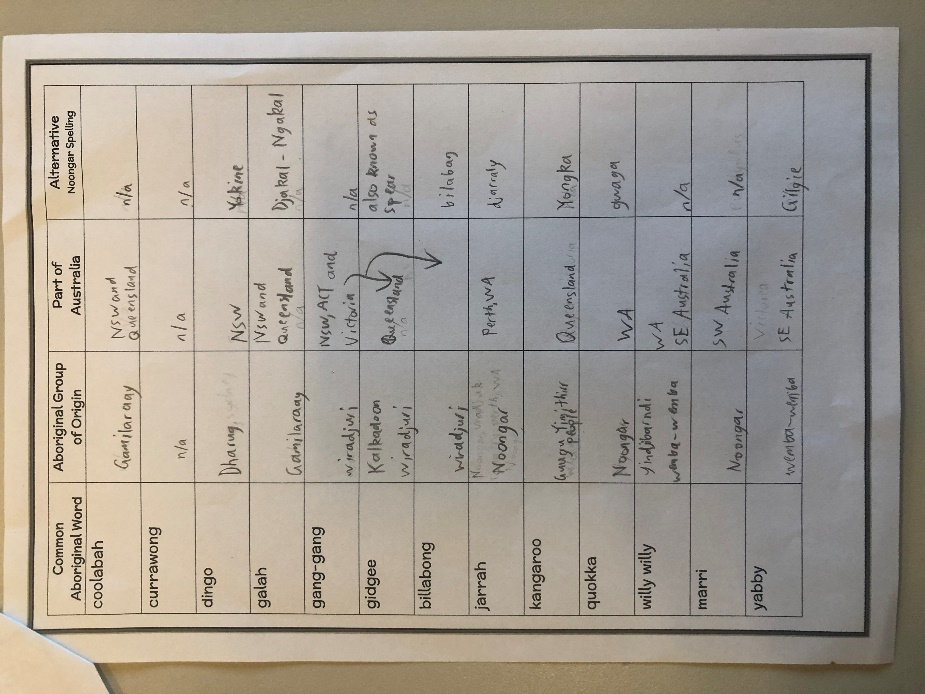 Common Aboriginal Word
Aboriginal Group of Origin
Part of Australia
Alternative Noongar Spelling
coolabah
Gamilaraay
NSW and
Queensland
n/a
currawong
n/a
n/a
n/a
dingo
Dharug
NSW
Yokine
galah
Gamilaraay
NSW and
Queensland
Djakal - Ngakal
gang-gang
wiradjuri
NSW, ACT and
Victoria
n/a
gidgee
Kalkadoon
wiradjuri
Queensland
also known as
spear
billabong
wiradjuri
bilabag
jarrah
Noongar
Perth, WA
djarraly
kangaroo
Guugu Yimithirr
people
Queensland
Yongka
quokka
Noongar
WA
gwaga
willy willy
Yindjibarndi
wemba-wemba
WA
SE Australia
n/a
marri
Noongar
SW Australia
n/a
yabby
wemba-wemba
SE Australia
Gilgie